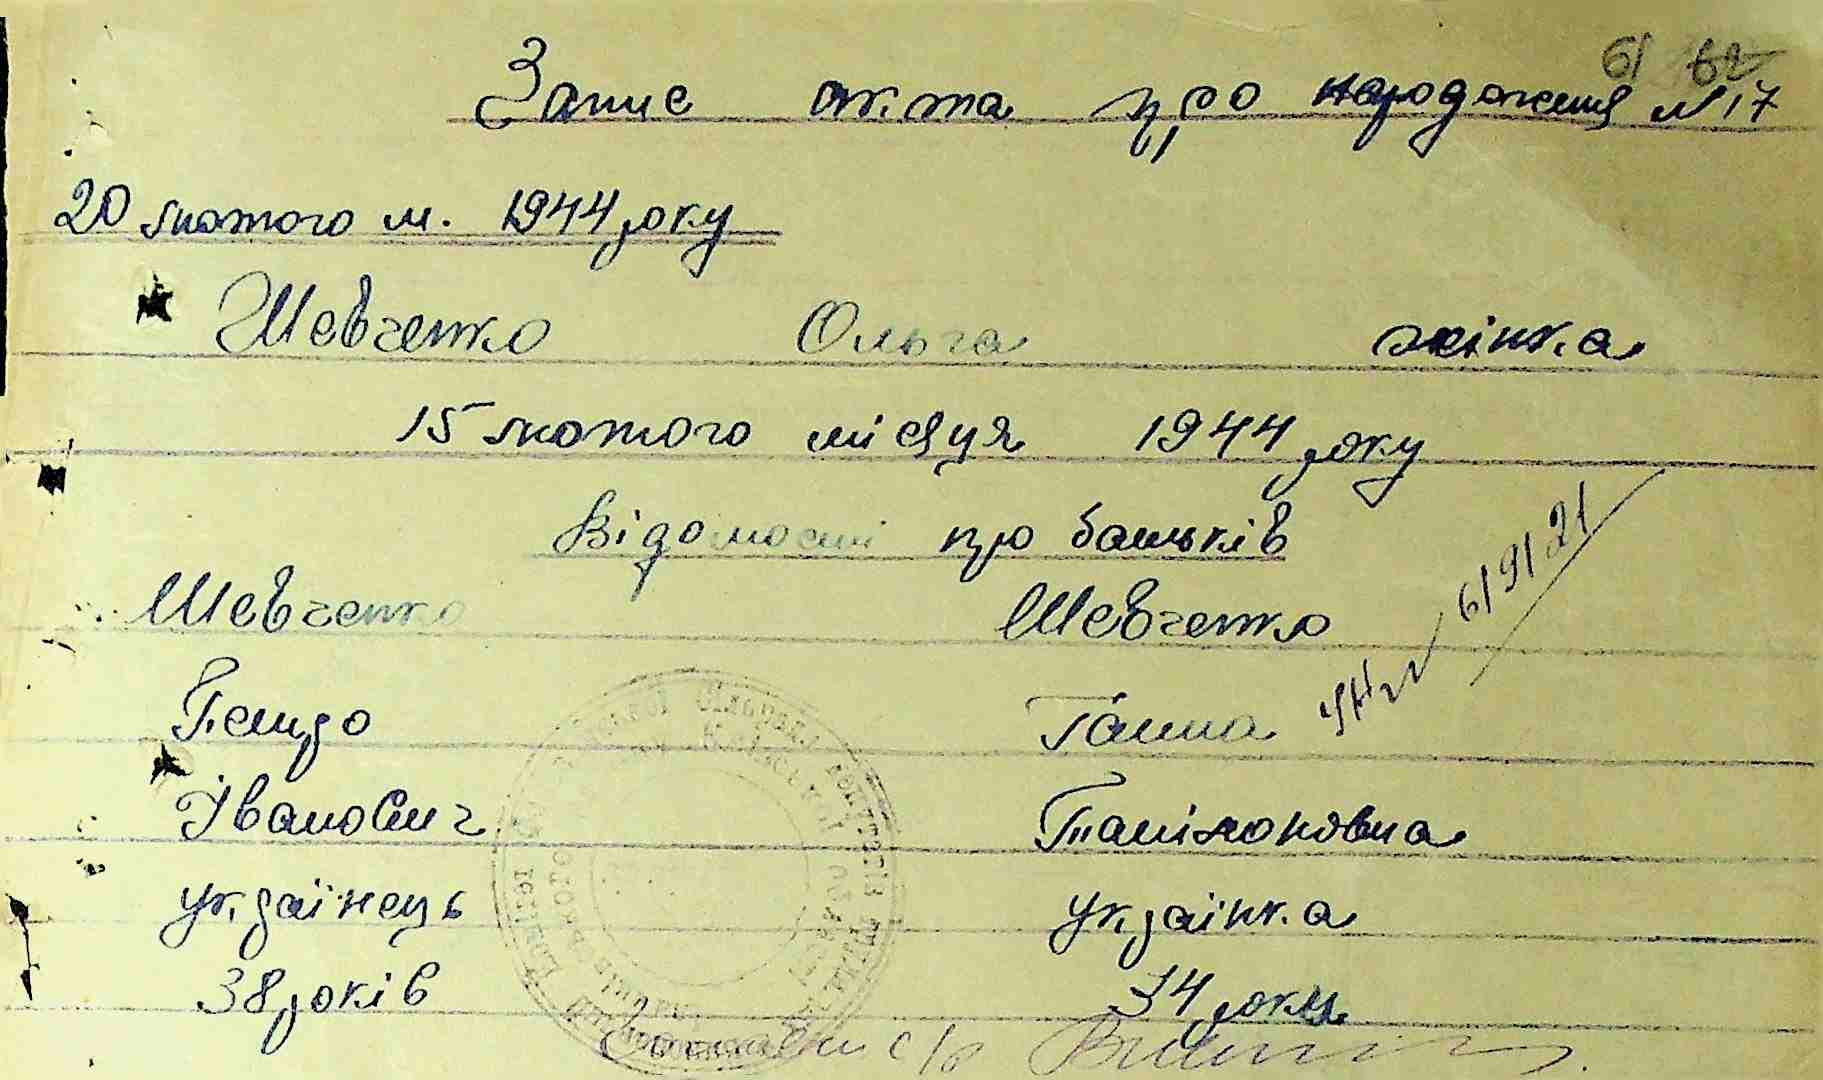 61 62
Запис акта про народження N 17
20 лютого м. 1944 року
Шевченко Ольга жінка
15 лютого місяця 1944 року
Відомості про батьків
Шевченко Шевченко
6/9/21
Петро Ганна
Іванович Панімоновна
українець українка
38 років 34 роки
с/р